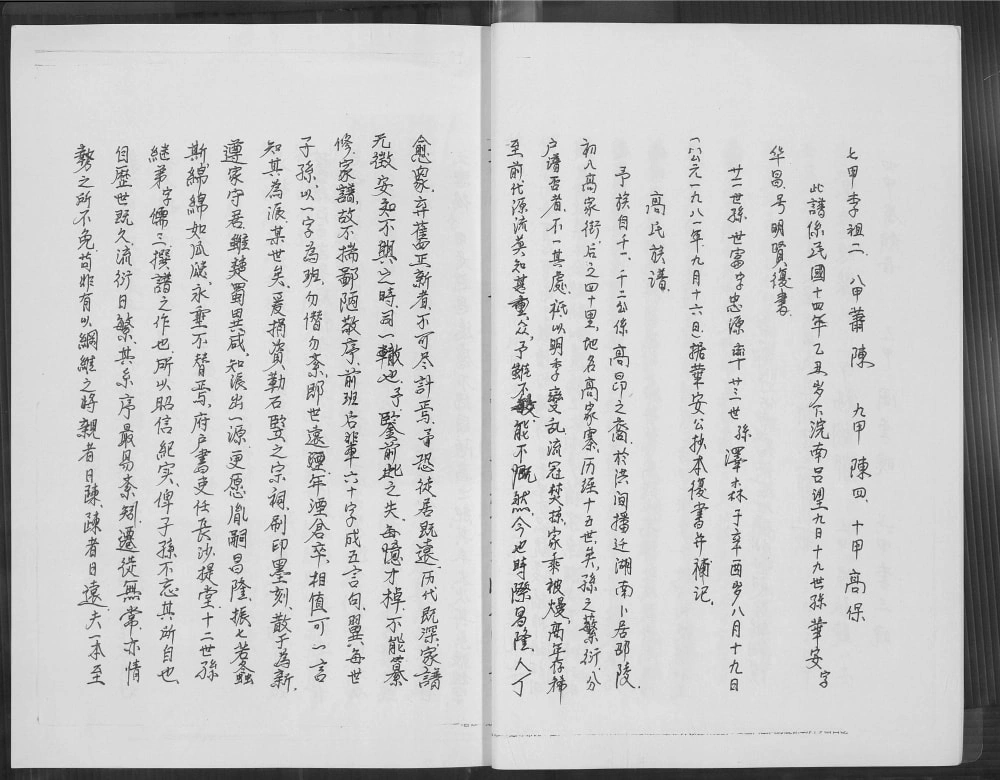 七甲李祖二　八甲蕭　陳　九甲　陳四　十甲　高保
此譜係民國十四年乙丑岁下浣南吕望九日十九世孫華安字
华昌号明賢復書
廿二世孫世富字忠源率廿三世孫澤森于辛酉岁八月十九日
(公元一九八一年九月十六日)据華安公抄本復書并補记
高氏族譜
予族自千一、千二公係高昂之裔於洪间播迁湖南卜居邵陵
初入高家街后之四十里地名高家寨历经十五世矣孫之蘩衍分
户谱者不一其處祇以明季變乱流冦焚掠家乘被燬高年存稀
至前代源流莫知其重众予雖不敏能不慨然今也時際昌隆人丁
愈家弃舊正新者不可尽計焉予恐徒居既遠历代既深家譜
无徴安知不與之時同一轍也予鑒前此之失每憶才掉不能纂
修家譜故不揣鄙陋敬序前班名輩六十字成五言句翼每世
子孫以一字為班勿僭勿紊即世遠年湮倉卒相值可一言
知其為派某世矣爰捐資勒石竪之宗祠刷印墨刻散于為新
遵家守君雖楚蜀異咸知派出一源更愿胤嗣昌隆振七若螽
斯綿綿如瓜瓞永垂不替焉府户書吏任長沙提堂十二世孫
継弟字儒三撰譜之作也所以昭信紀实俾子孫不忘其所自也
自歷世既久流衍日繁其系序最易紊矧遷徙無常亦情
勢之所不免苟非有以綱維之時親者日疎疎者日遠夫一本至